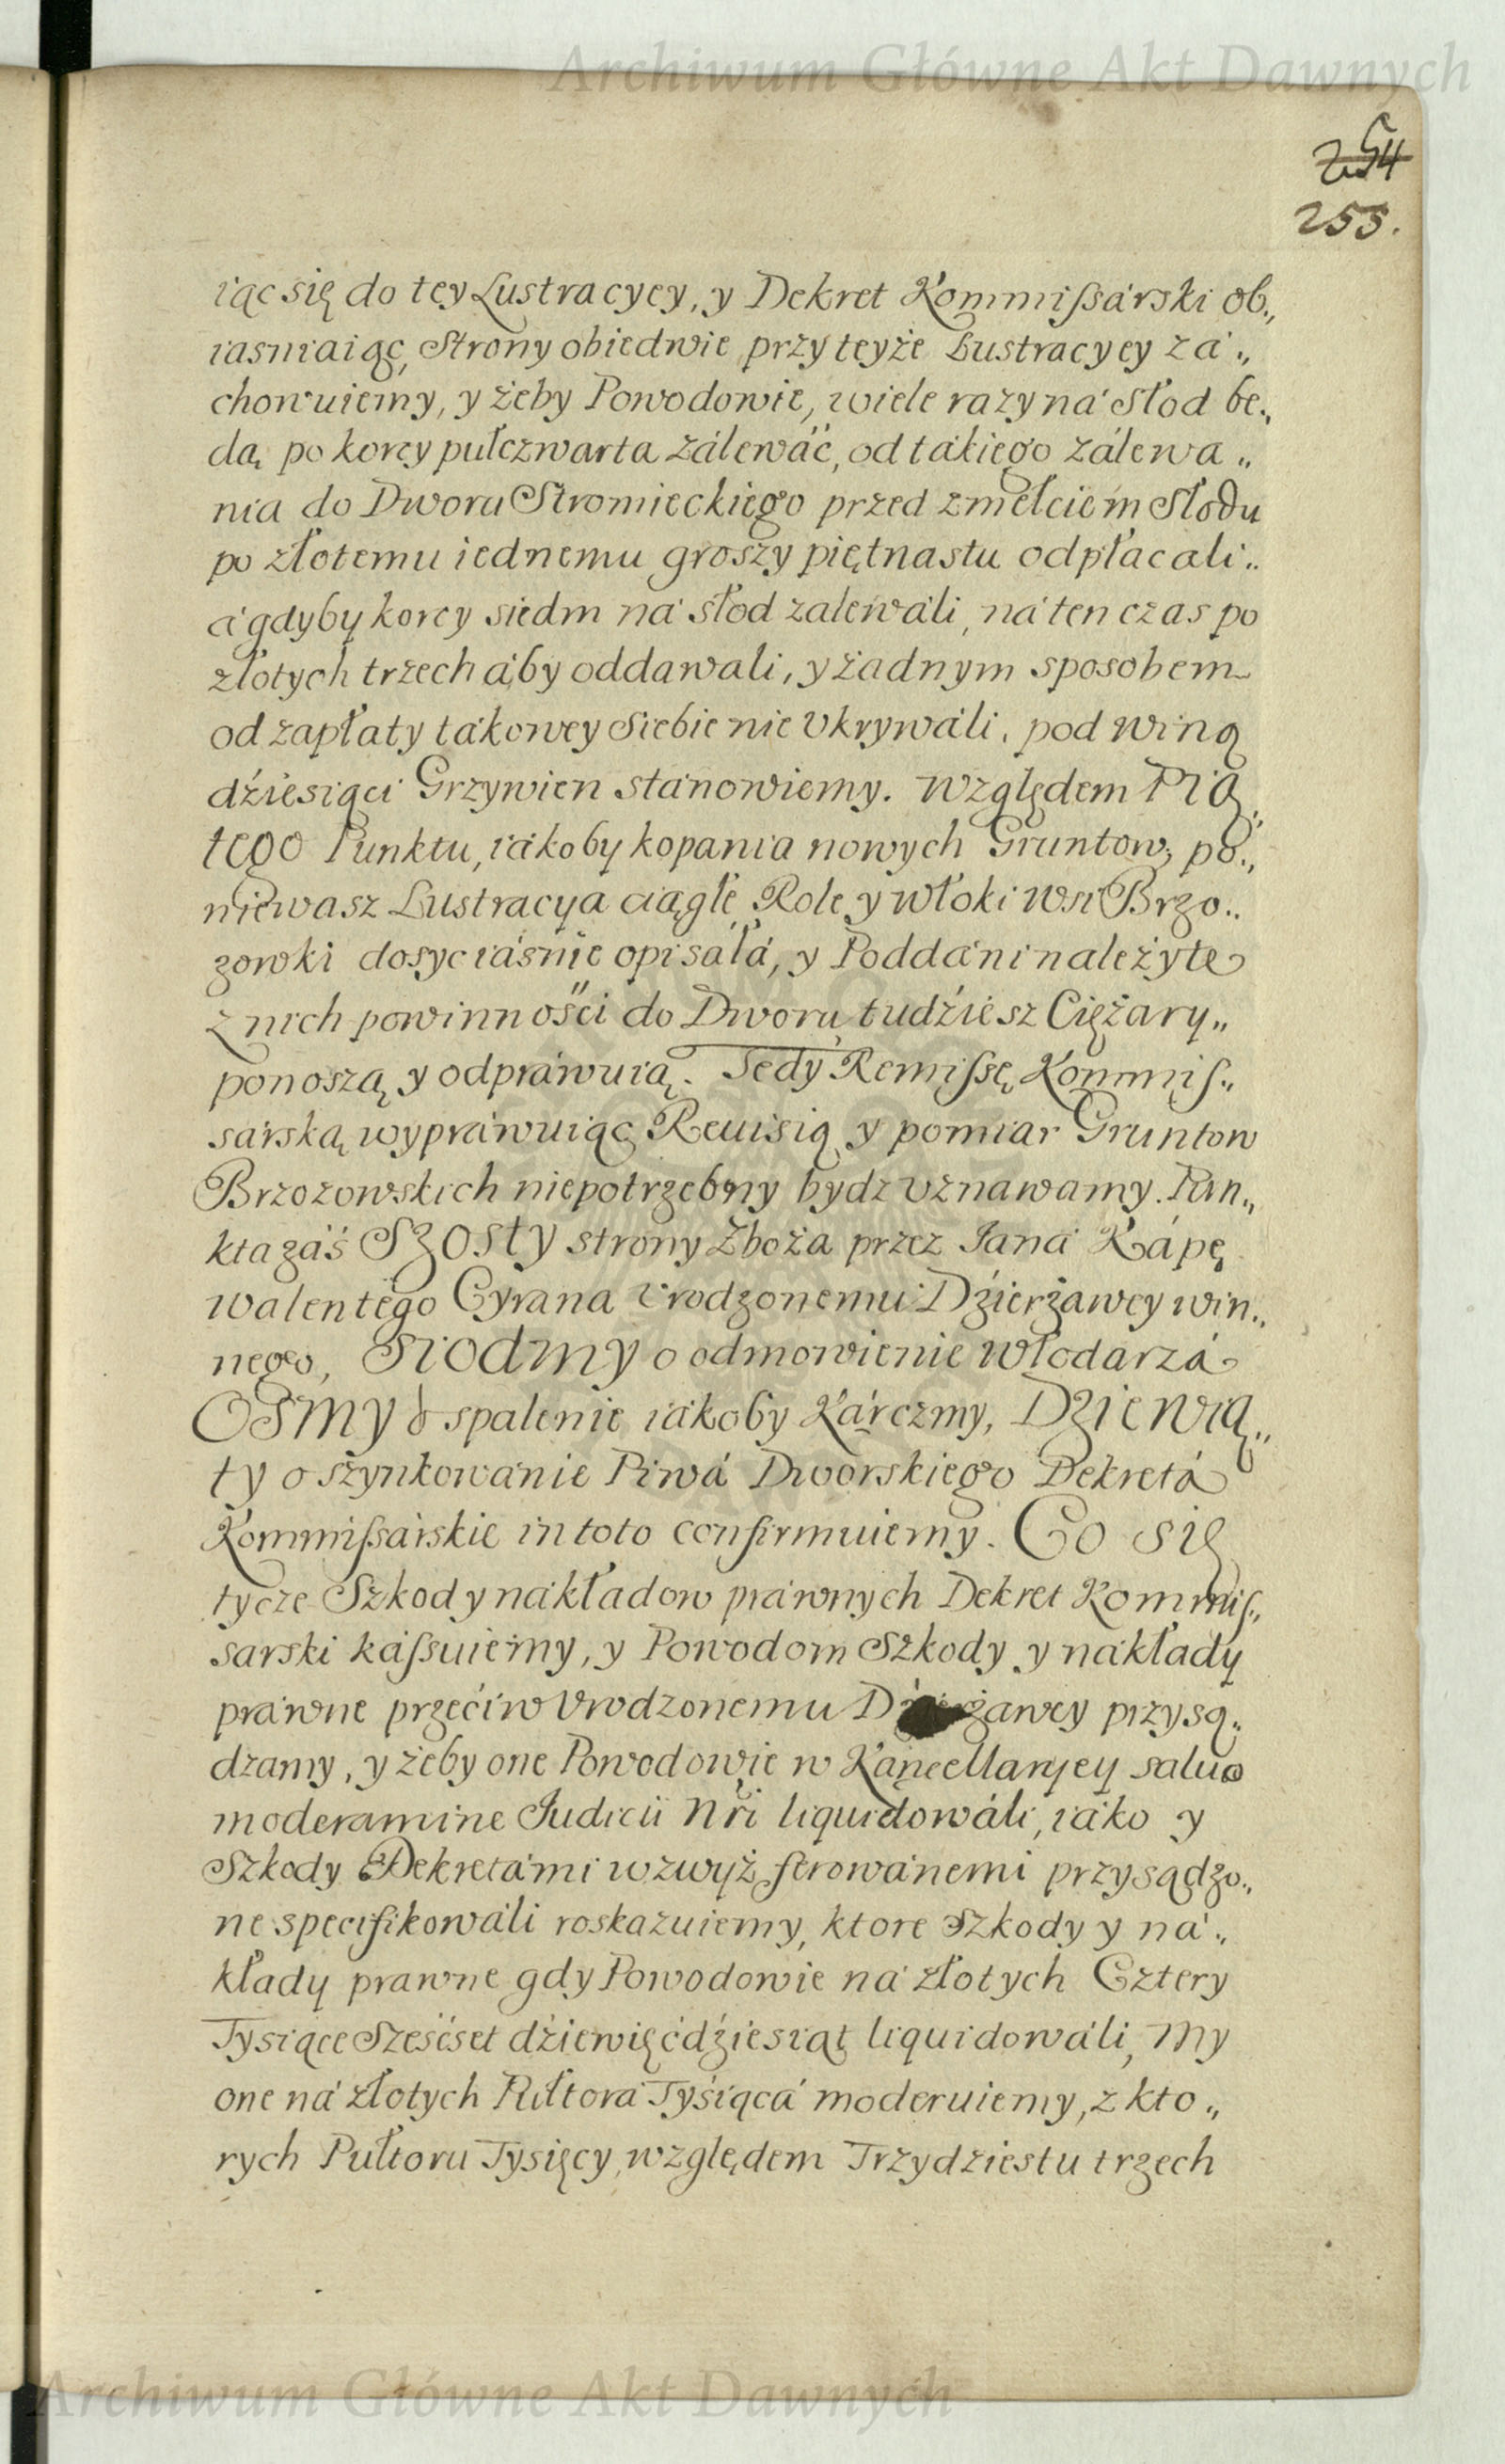 Archiwum Główne Akt Dawnych
254
255.
iąc się do tey Lustracyey, y Dekret Kommißárski ob„
iasniaiąc, Strony obiedwie przy teyże Lustracyey zá„
chowuiemy, y żeby Powodowie, wiele razy ná Słod be„
dą po korcy pułczwarta zálewáć, od tákiego zálewa„
nia do Dworu Stromieckiego przed zmełciem Słodu
po złotemu iednemu groszy piętnastu odpłacali„
á gdyby korcy siedm ná słod zalewáli, ná ten czas po
złotych trzech áby oddawali, y żadnym sposobem
od zapłaty tákowey siebie nie Vkrywáli, pod winą
dźiesiąci Grzywien stánowiemy. Względem Pią„
tego Punktu, iákoby kopania nowych Gruntow, po„
niewasz Lustracya ciągłe Role y włoki wsi Brzo„
zowki dosyc iáśnie opisáłá, y Poddáni należyte
z nich powinnośći do Dworu tudźiesz Ciężary„
ponoszą y odpráwuią. Tedy Remißę Kommis„
sárską wypráwuiąc Reuisią y pomiar Gruntow
Brzozowskich niepotrzebny bydz vznawamy. Pun„
kta záś Szosty strony Zboża przez Janá Kápę
walentego Cyrana Vrodzonemu Dźierżawcy win„
nego, Siodmy o odmowienie Włodarzá
Osmy o spalenie iákoby Kárczmy, Dziewią„
ty o szynkowánie Piwá Dworskiego Dekretá
Kommißárskie in toto confirmuiemy. Co się
tycze Szkod y nákładow práwnych Dekret Kommis„
sarski káßuiemy, y Powodom Szkody y nákłady
práwne przećiw Vrodzonemu Dźierżawcy przysą„
dzamy, y żeby one Powodowie w Kancellaryey saluo
moderamine Judicii Nri liquidowáli, iáko y
Szkody Dekretámi wzwyż ferowánemi przysądzo„
ne specifikowáli roskazuiemy, ktore Szkody y ná„
kłady prawne gdy Powodowie ná złotych Cztery
Tysiące Sześćset dźiewięćdźiesiąt liquidowáli, My
one ná złotych Pułtorá Tyśiącá moderuiemy, z kto„
rych Pułtoru Tysięcy, względem Trzydziestu trzech
Archiwum Główne Akt Dawnych